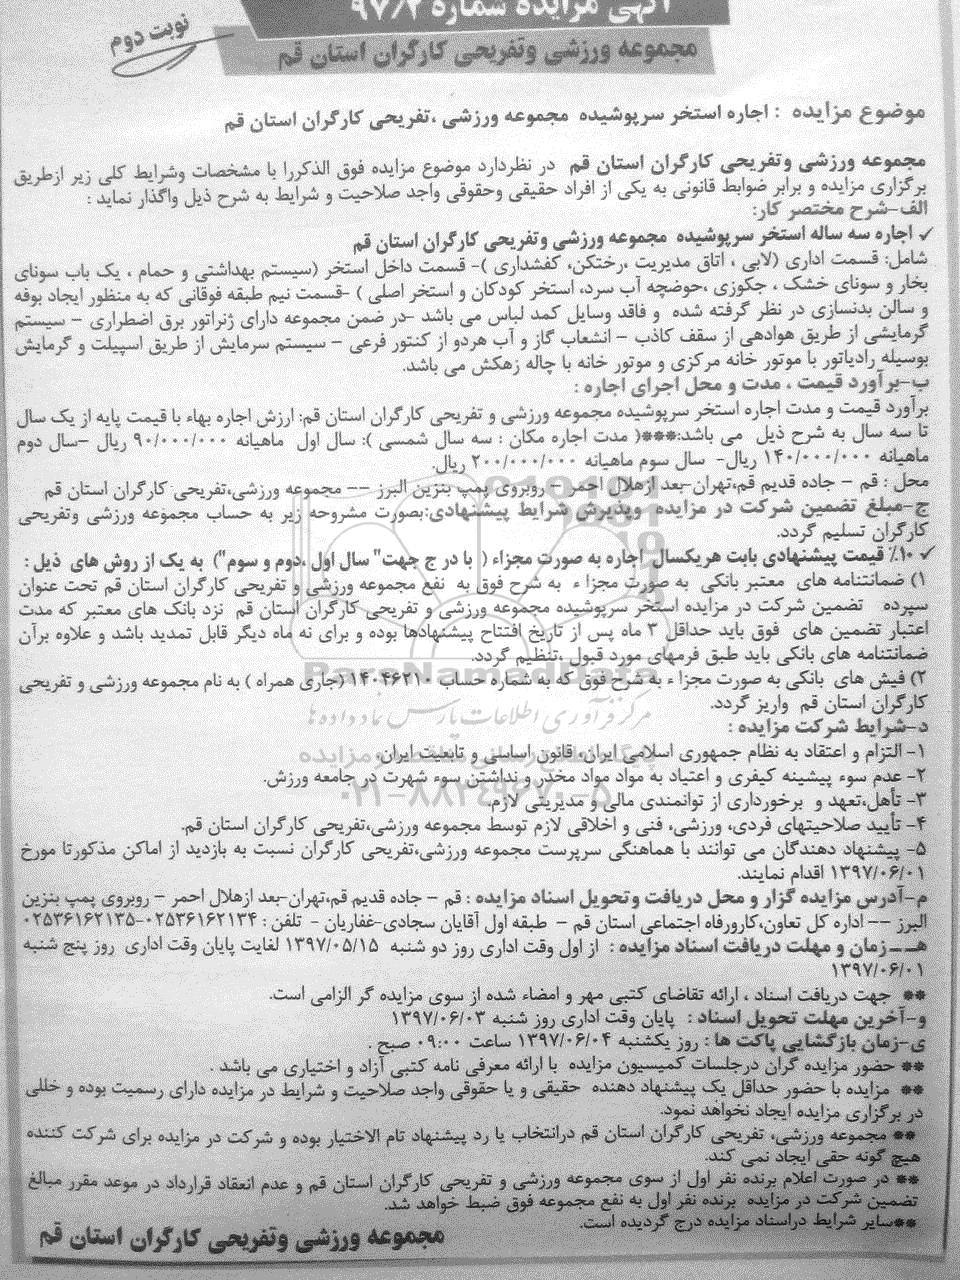 آگهی مزایده شماره ۹۷/۲
نوبت دوم
مجموعه ورزشی وتفریحی کارگران استان قم
موضوع مزایده : اجاره استخر سرپوشیده مجموعه ورزشی ،تفریحی کارگران استان قم
مجموعه ورزشی وتفریحی کارگران استان قم در نظردارد موضوع مزایده فوق الذکررا با مشخصات وشرایط کلی زیر ازطریق
برگزاری مزایده و برابر ضوابط قانونی به یکی از افراد حقیقی وحقوقی واجد صلاحیت و شرایط به شرح ذیل واگذار نماید :
الف-شرح مختصر کار:
✓ اجاره سه ساله استخر سرپوشیده مجموعه ورزشی وتفریحی کارگران استان قم
شامل: قسمت اداری (لابی ، اتاق مدیریت ،رختکن، کفشداری )- قسمت داخل استخر (سیستم بهداشتی و حمام ، یک باب سونای
بخار و سونای خشک ، جکوزی ،حوضچه آب سرد، استخر کودکان و استخر اصلی ) -قسمت نیم طبقه فوقانی که به منظور ایجاد بوفه
و سالن بدنسازی در نظر گرفته شده و فاقد وسایل کمد لباس می باشد -در ضمن مجموعه دارای ژنراتور برق اضطراری – سیستم
گرمایشی از طریق هوادهی از سقف کاذب – انشعاب گاز و آب هردو از کنتور فرعی – سیستم سرمایش از طریق اسپیلت و گرمایش
بوسیله رادیاتور با موتور خانه مرکزی و موتور خانه با چاله زهکش می باشد.
ب-برآورد قیمت ، مدت و محل اجرای اجاره :
برآورد قیمت و مدت اجاره استخر سرپوشیده مجموعه ورزشی و تفریحی کارگران استان قم: ارزش اجاره بهاء با قیمت پایه از یک سال
تا سه سال به شرح ذیل می باشد:***( مدت اجاره مکان : سه سال شمسی ): سال اول ماهیانه ۹۰/۰۰۰/۰۰۰ ریال –سال دوم
ماهیانه ۱۴۰/۰۰۰/۰۰۰ ریال- سال سوم ماهیانه ۲۰۰/۰۰۰/۰۰۰ ریال.
محل : قم – جاده قدیم قم،تهران-بعد ازهلال احمر – روبروی پمپ بنزین البرز –– مجموعه ورزشی،تفریحی کارگران استان قم
ج-مبلغ تضمین شرکت در مزایده وپذیرش شرایط پیشنهادی:بصورت مشروحه زیر به حساب مجموعه ورزشی وتفریحی
کارگران تسلیم گردد.
✓ ۱۰٪ قیمت پیشنهادی بابت هریکسال اجاره به صورت مجزاء ( با در ج جهت" سال اول ،دوم و سوم") به یک از روش های ذیل :
۱) ضمانتنامه های معتبر بانکی به صورت مجزا ء به شرح فوق به نفع مجموعه ورزشی و تفریحی کارگران استان قم تحت عنوان
سپرده تضمین شرکت در مزایده استخر سرپوشیده مجموعه ورزشی و تفریحی کارگران استان قم نزد بانک های معتبر که مدت
اعتبار تضمین های فوق باید حداقل ۳ ماه پس از تاریخ افتتاح پیشنهادها بوده و برای نه ماه دیگر قابل تمدید باشد و علاوه برآن
ضمانتنامه های بانکی باید طبق فرمهای مورد قبول ،تنظیم گردد.
۲) فیش های بانکی به صورت مجزا ء به شرح فوق که به شماره حساب ۱۴۰۴۶۲۱۰ (جاری همراه ) به نام مجموعه ورزشی و تفریحی
کارگران استان قم واریز گردد.
د-شرایط شرکت مزایده :
۱- التزام و اعتقاد به نظام جمهوری اسلامی ایران، قانون اساسی و تابعیت ایران
۲- عدم سوء پیشینه کیفری و اعتیاد به مواد مواد مخدر و نداشتن سوء شهرت در جامعه ورزش.
۳- تأهل،تعهد و برخورداری از توانمندی مالی و مدیریتی لازم.
۴- تأیید صلاحیتهای فردی، ورزشی، فنی و اخلاقی لازم توسط مجموعه ورزشی،تفریحی کارگران استان قم.
۵- پیشنهاد دهندگان می توانند با هماهنگی سرپرست مجموعه ورزشی،تفریحی کارگران نسبت به بازدید از اماکن مذکورتا مورخ
۱۳۹۷/۰۶/۰۱ اقدام نمایند.
م-آدرس مزایده گزار و محل دریافت وتحویل اسناد مزایده : قم – جاده قدیم قم،تهران-بعد ازهلال احمر – روبروی پمپ بنزین
البرز –– اداره کل تعاون،کارورفاه اجتماعی استان قم – طبقه اول آقایان سجادی-غفاریان - تلفن : ۰۲۵۳۶۱۶۲۱۳۴-۰۲۵۳۶۱۶۲۱۳۵
هـ–زمان و مهلت دریافت اسناد مزایده : از اول وقت اداری روز دو شنبه ۱۳۹۷/۰۵/۱۵ لغایت پایان وقت اداری روز پنج شنبه
۱۳۹۷/۰۶/۰۱
** جهت دریافت اسناد ، ارائه تقاضای کتبی مهر و امضاء شده از سوی مزایده گر الزامی است.
و-آخرین مهلت تحویل اسناد : پایان وقت اداری روز شنبه ۱۳۹۷/۰۶/۰۳
ی-زمان بازگشایی پاکت ها : روز یکشنبه ۱۳۹۷/۰۶/۰۴ ساعت ۰۹:۰۰ صبح .
** حضور مزایده گران درجلسات کمیسیون مزایده با ارائه معرفی نامه کتبی آزاد و اختیاری می باشد .
** مزایده با حضور حداقل یک پیشنهاد دهنده حقیقی و یا حقوقی واجد صلاحیت و شرایط در مزایده دارای رسمیت بوده و خللی
در برگزاری مزایده ایجاد نخواهد نمود.
** مجموعه ورزشی، تفریحی کارگران استان قم درانتخاب یا رد پیشنهاد تام الاختیار بوده و شرکت در مزایده برای شرکت کننده
هیچ گونه حقی ایجاد نمی کند.
** در صورت اعلام برنده نفر اول از سوی مجموعه ورزشی و تفریحی کارگران استان قم و عدم انعقاد قرارداد در موعد مقرر مبالغ
تضمین شرکت در مزایده برنده نفر اول به نفع مجموعه فوق ضبط خواهد شد.
**سایر شرایط دراسناد مزایده درج گردیده است.
مجموعه ورزشی وتفریحی کارگران استان قم
ParsNamadData
مرکز فرآوری اطلاعات پارس نماد داده ها
۰۲۱-۸۸۳۴۹۶۷۰-۵